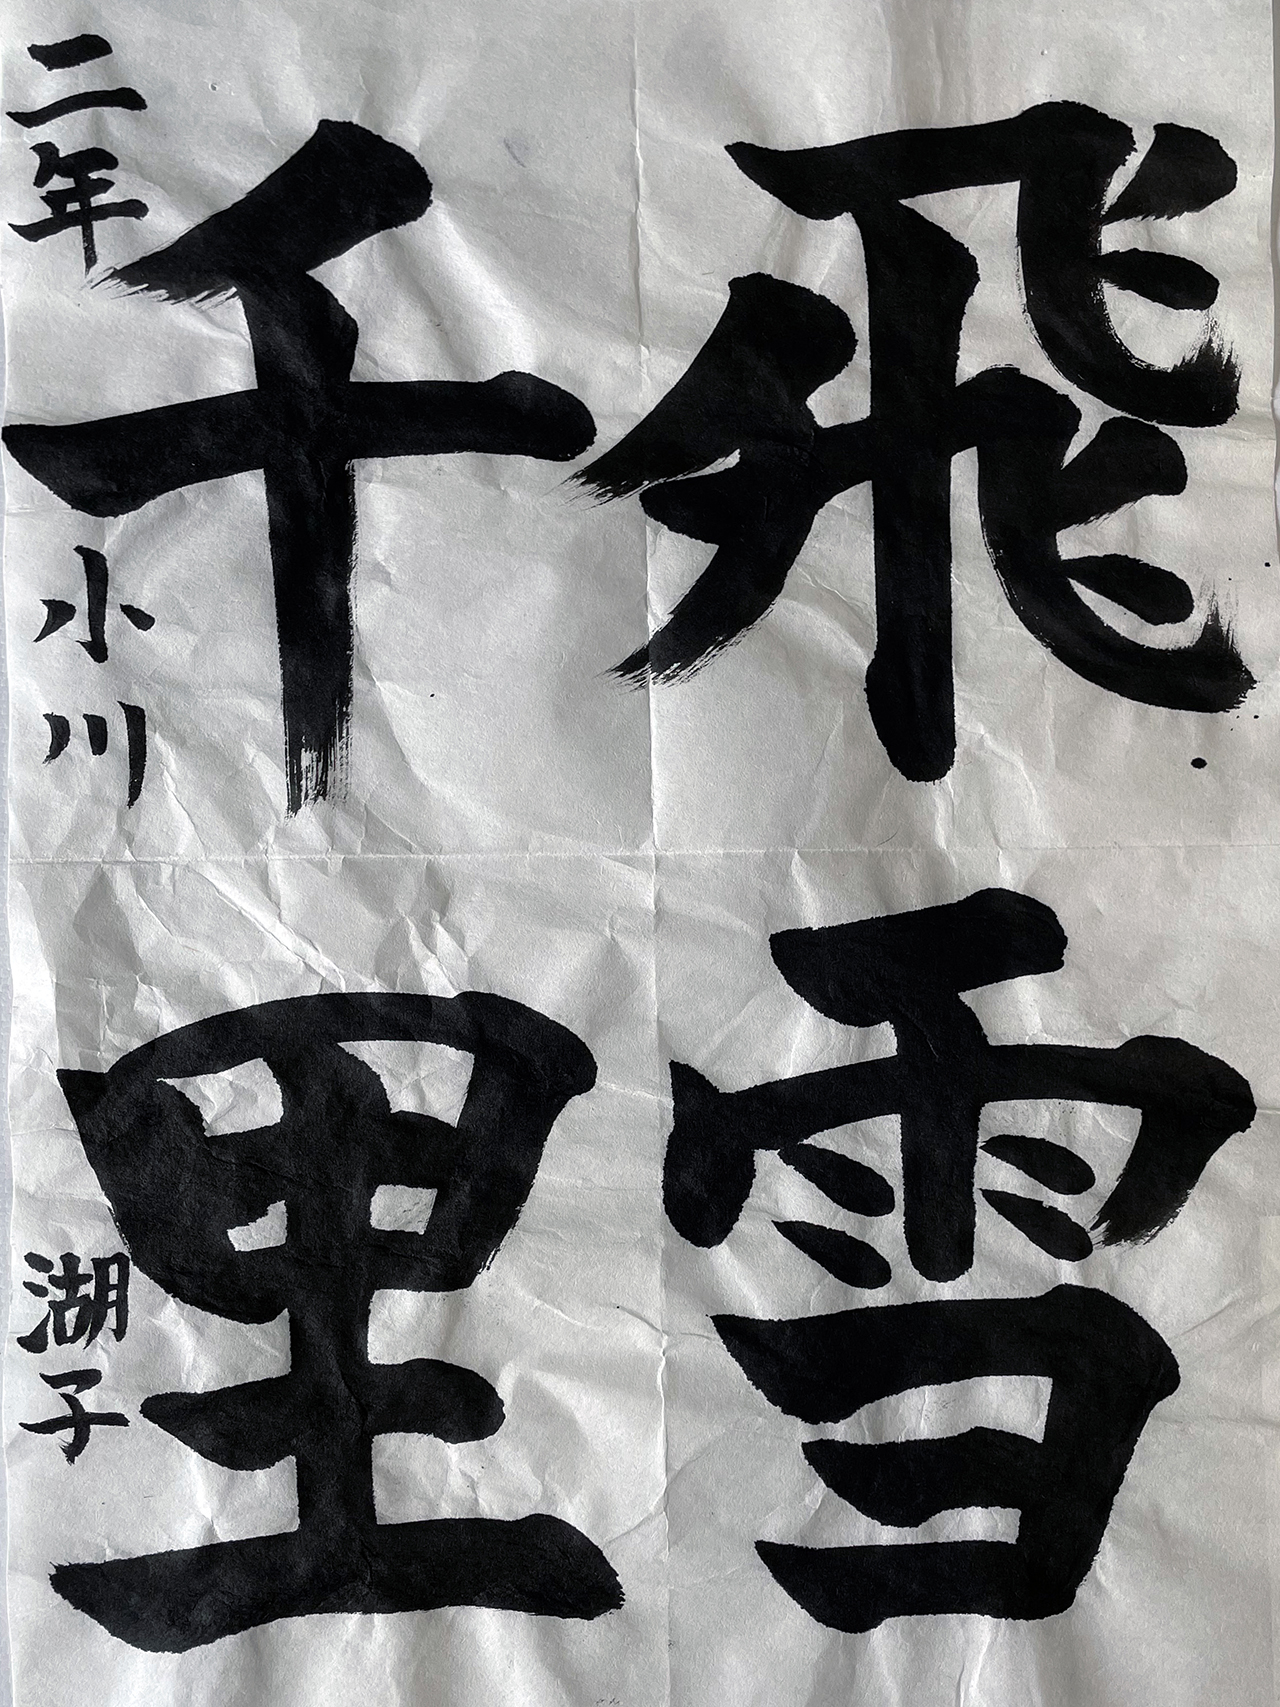 飛雪
千里
二年 小川 湖子